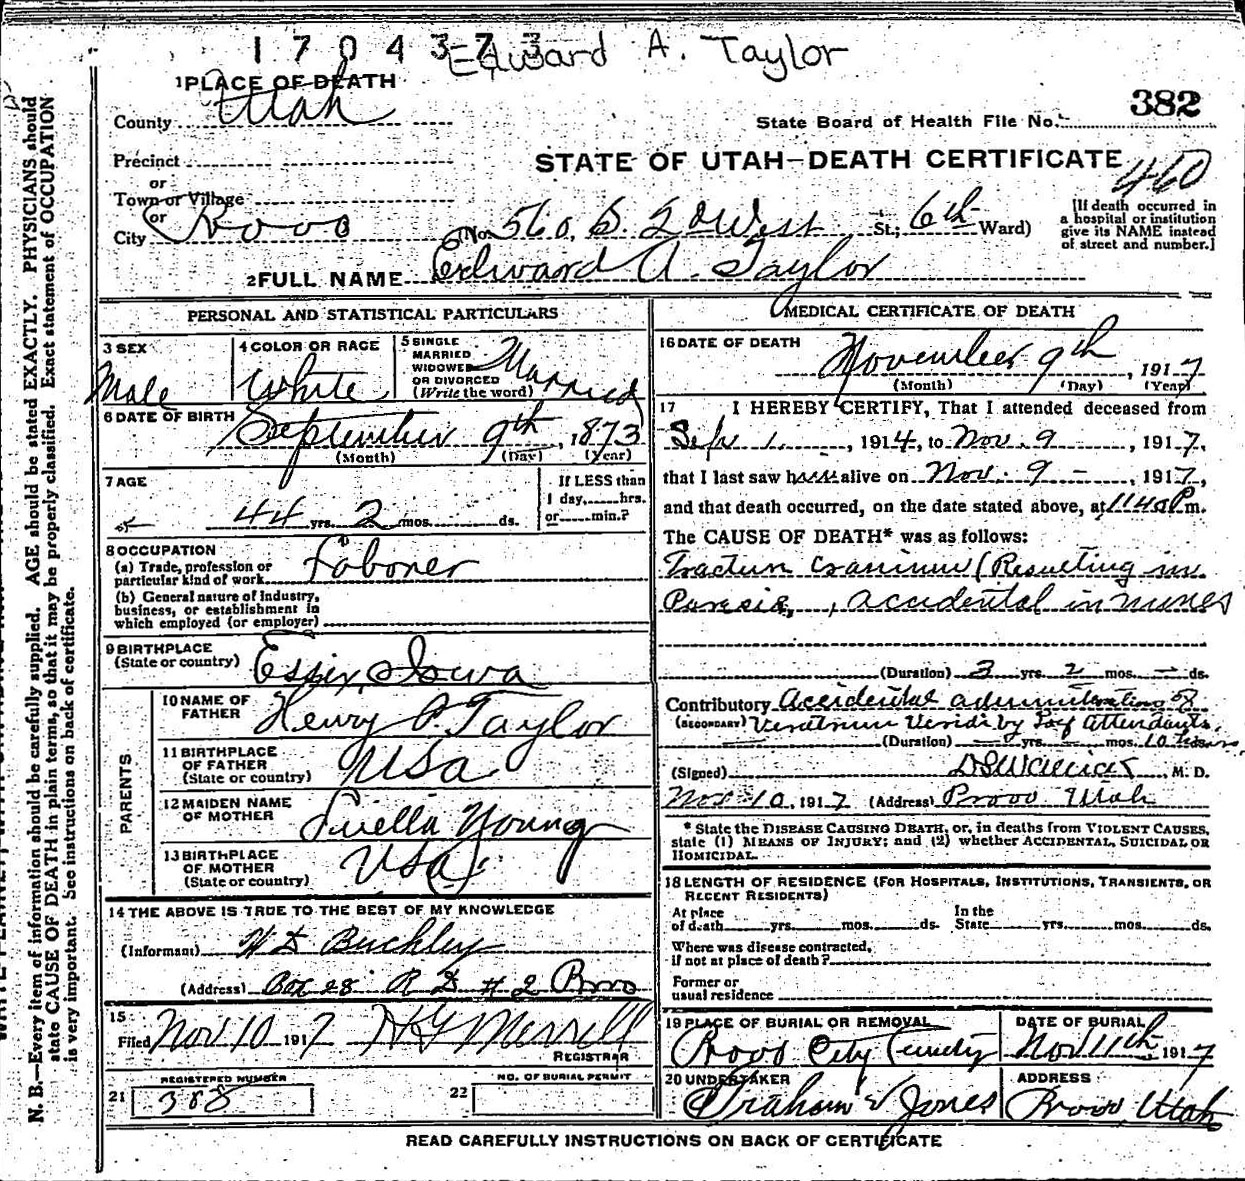 1704373
Edward A. Taylor
1 PLACE OF DEATH
County Utah
382
State Board of Health File No.
Precinct
STATE OF UTAH—DEATH CERTIFICATE
460
or
Town or Village
or
City Provo
No. 560, S. 2nd West St.; 6th Ward)
[If death occurred in
a hospital or institution
give its NAME instead
of street and number.]
2 FULL NAME Edward A. Taylor
PERSONAL AND STATISTICAL PARTICULARS
3 SEX
Male
4 COLOR OR RACE
White
5 SINGLE
MARRIED
WIDOWED
OR DIVORCED
(Write the word)
Married
6 DATE OF BIRTH
September 9th, 1873
(Month) (Day) (Year)
7 AGE
44 yrs. 2 mos. ds.
If LESS than
1 day, hrs.
or min.?
8 OCCUPATION
(a) Trade, profession or
particular kind of work Laborer
(b) General nature of industry,
business, or establishment in
which employed (or employer)
9 BIRTHPLACE
(State or country) Essix, Iowa
PARENTS
10 NAME OF
FATHER Henry Taylor
11 BIRTHPLACE
OF FATHER
(State or country) USA
12 MAIDEN NAME
OF MOTHER Luella Young
13 BIRTHPLACE
OF MOTHER
(State or country) USA
14 THE ABOVE IS TRUE TO THE BEST OF MY KNOWLEDGE
(Informant) Buckley
(Address) Box 28 R D #2 Provo
15
Filed Nov 10 1917 Merrell
REGISTRAR
REGISTERED NUMBER
21 388
NO. OF BURIAL PERMIT
22
MEDICAL CERTIFICATE OF DEATH
16 DATE OF DEATH
November 9th, 1917
(Month) (Day) (Year)
17 I HEREBY CERTIFY, That I attended deceased from
Sept 1, 1914, to Nov. 9, 1917,
that I last saw him alive on Nov. 9, 1917,
and that death occurred, on the date stated above, at 1140 P.m.
The CAUSE OF DEATH* was as follows:
Cranium (Resulting in
Paresis, accidental in mines
(Duration) 3 yrs. 2 mos. — ds.
Contributory Accidental administrating of
(SECONDARY) Veratrum Veride by Lay Attendants.
(Duration) — yrs. — mos. 10 hours
(Signed) M. D.
Nov 10, 1917 (Address) Provo Utah
* State the DISEASE CAUSING DEATH, or, in deaths from VIOLENT CAUSES,
state (1) MEANS OF INJURY; and (2) whether ACCIDENTAL, SUICIDAL OR
HOMICIDAL.
18 LENGTH OF RESIDENCE (FOR HOSPITALS, INSTITUTIONS, TRANSIENTS, OR
RECENT RESIDENTS)
At place
of death yrs. mos. ds.
In the
State yrs. mos. ds.
Where was disease contracted,
if not at place of death?
Former or
usual residence
19 PLACE OF BURIAL OR REMOVAL
Provo City Cemetery
DATE OF BURIAL
Nov 11th, 1917
20 UNDERTAKER
Graham & Jones
ADDRESS
Provo, Utah
READ CAREFULLY INSTRUCTIONS ON BACK OF CERTIFICATE
N. B.—Every item of information should be carefully supplied. AGE should be stated EXACTLY. PHYSICIANS should
state CAUSE OF DEATH in plain terms, so that it may be properly classified. Exact statement of OCCUPATION
is very important. See instructions on back of certificate.